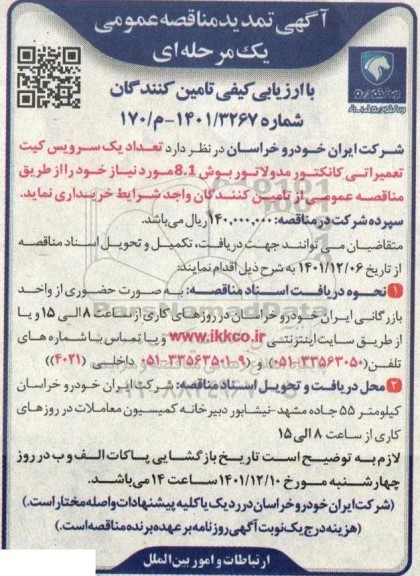 آگهی تمدید مناقصه عمومی
یک مرحله ای
با ارزیابی کیفی تامین کنندگان
شماره ۱۴۰۱/۳۲۶۷-م/۱۷۰
شرکت ایران خودرو خراسان در نظر دارد تعداد یک سرویس کیت
تعمیراتی کانکتور مدولاتور بوش 8.1 مورد نیاز خود را از طریق
مناقصه عمومی از تامین کنندگان واجد شرایط خریداری نماید.
سپرده شرکت در مناقصه: ۱۴۰,۰۰۰,۰۰۰ ریال می‌باشد.
متقاضیان می توانند جهت دریافت، تکمیل و تحویل اسناد مناقصه
از تاریخ ۱۴۰۱/۱۲/۰۶ به شرح ذیل اقدام نمایند:
۱ نحوه دریافت اسناد مناقصه: به صورت حضوری از واحد
بازرگانی ایران خودرو خراسان در روزهای کاری از ساعت ۸ الی ۱۵ و یا
از طریق سایت اینترنتی www.ikkco.ir و یا تماس با شماره های
تلفن (۳۳۵۶۳۰۵۰-۰۵۱) و (۹-۳۳۵۶۳۵۰۱-۰۵۱ داخلی (۴۰۲۱))
۲ محل دریافت و تحویل اسناد مناقصه: شرکت ایران خودرو خراسان
کیلومتر ۵۵ جاده مشهد-نیشابور دبیرخانه کمیسیون معاملات در روزهای
کاری از ساعت ۸ الی ۱۵
لازم به توضیح است تاریخ بازگشایی پاکات الف و ب در روز
چهارشنبه مورخ ۱۴۰۱/۱۲/۱۰ ساعت ۱۴ می‌باشد.
(شرکت ایران خودرو خراسان در رد یک یا کلیه پیشنهادات واصله مختار است.)
(هزینه درج یک نوبت آگهی روزنامه بر عهده برنده مناقصه است.)
ارتباطات و امور بین الملل